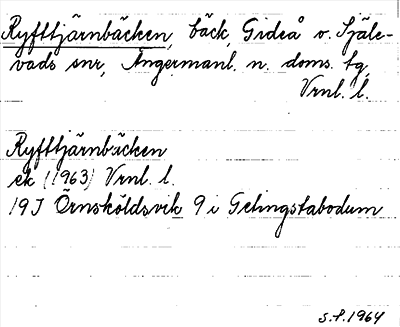 Ryfttjärnbäcken, bäck, Gideå o. Själe-
vads snr, Ångermanl. n. doms. tg,
Vrnl. l.
Ryfttjärnbäcken
ek (1963) Vrnl. l.
19J Örnsköldsvik 9 i Getingstabodum
S.F. 1964